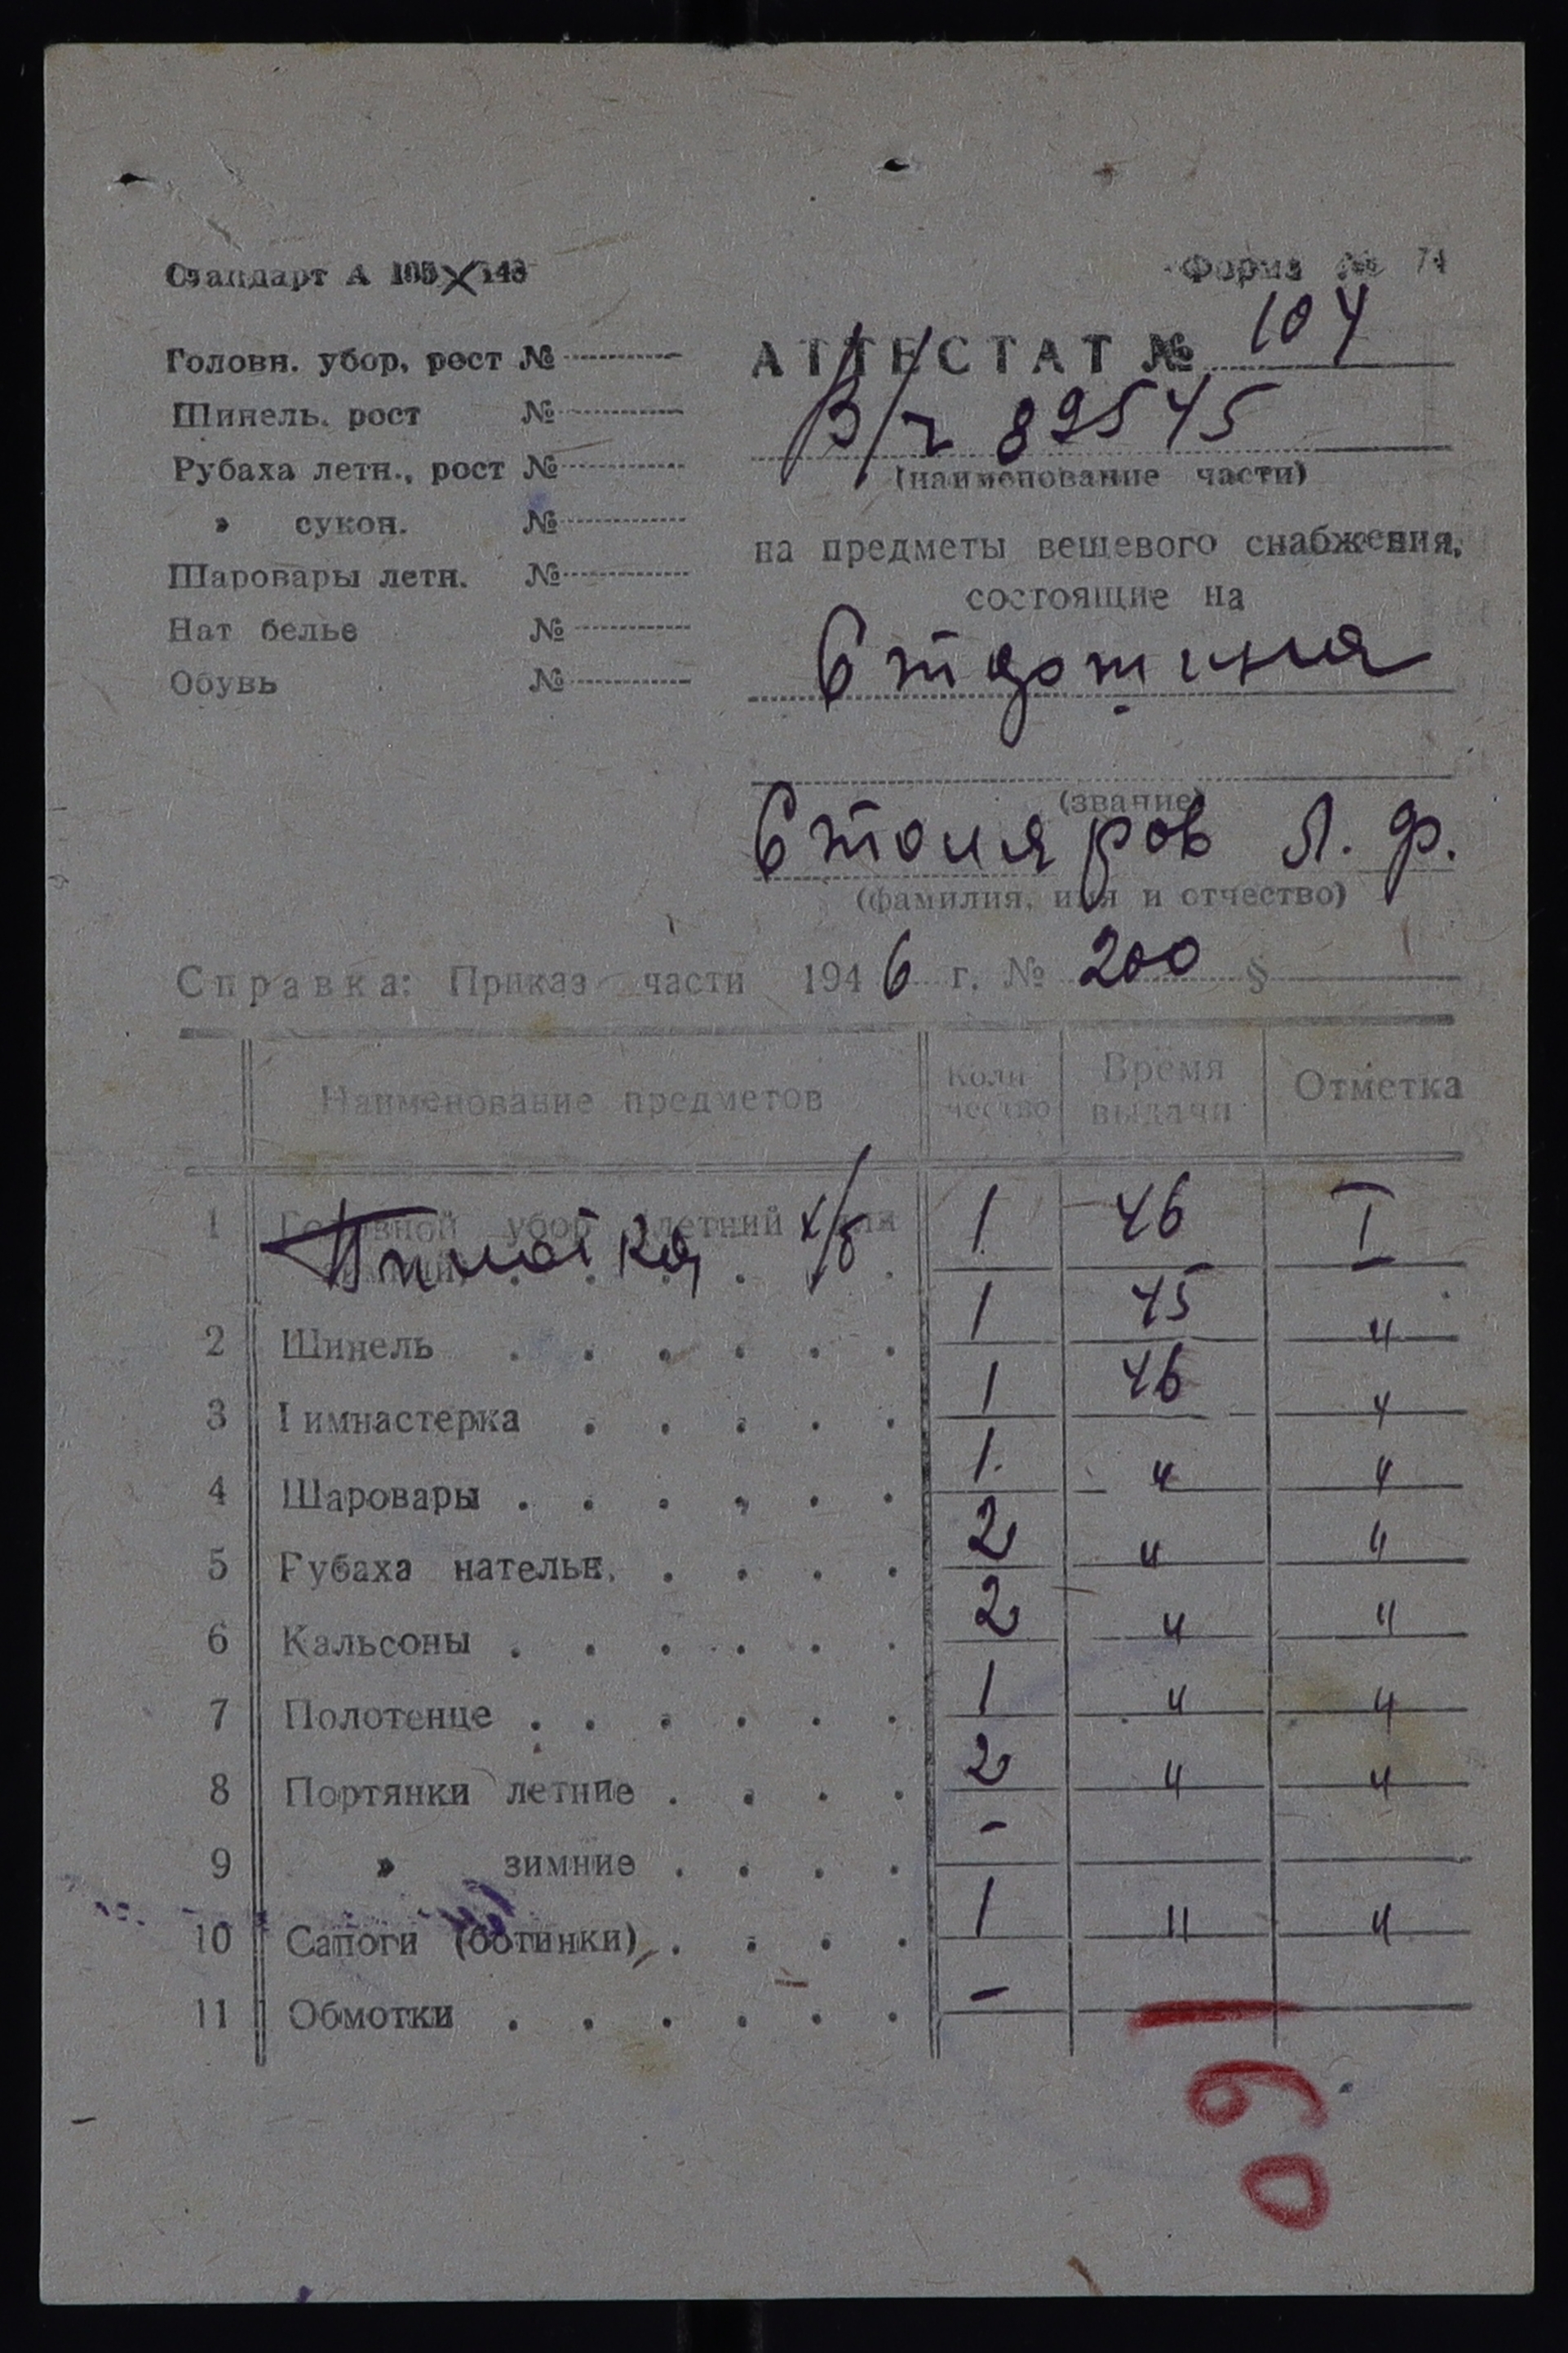 Стандарт А 105×148
Форма № 74
Головн. убор, рост №
Шинель. рост №
Рубаха летн., рост №
» сукон. №
Шаровары летн. №
Нат белье №
Обувь №
АТТЕСТАТ № 104
В/ч 89545
(наименование части)
на предметы вещевого снабжения,
состоящие на
(звание)
Столяров Л. Ф.
(фамилия, имя и отчество)
Справка: Приказ части 1946 г. № 200 §
Наименование предметов Количество Время выдачи Отметка
1 Головной убор летний или
Пилотка х/б 1 46 I
2 Шинель 1 45 "
3 Гимнастерка 1 46 "
4 Шаровары 1 " "
5 Рубаха нательн. 2 " "
6 Кальсоны 2 " "
7 Полотенце 1 " "
8 Портянки летние 2 " "
9 » зимние -
10 Сапоги (ботинки) 1 " "
11 Обмотки -
160